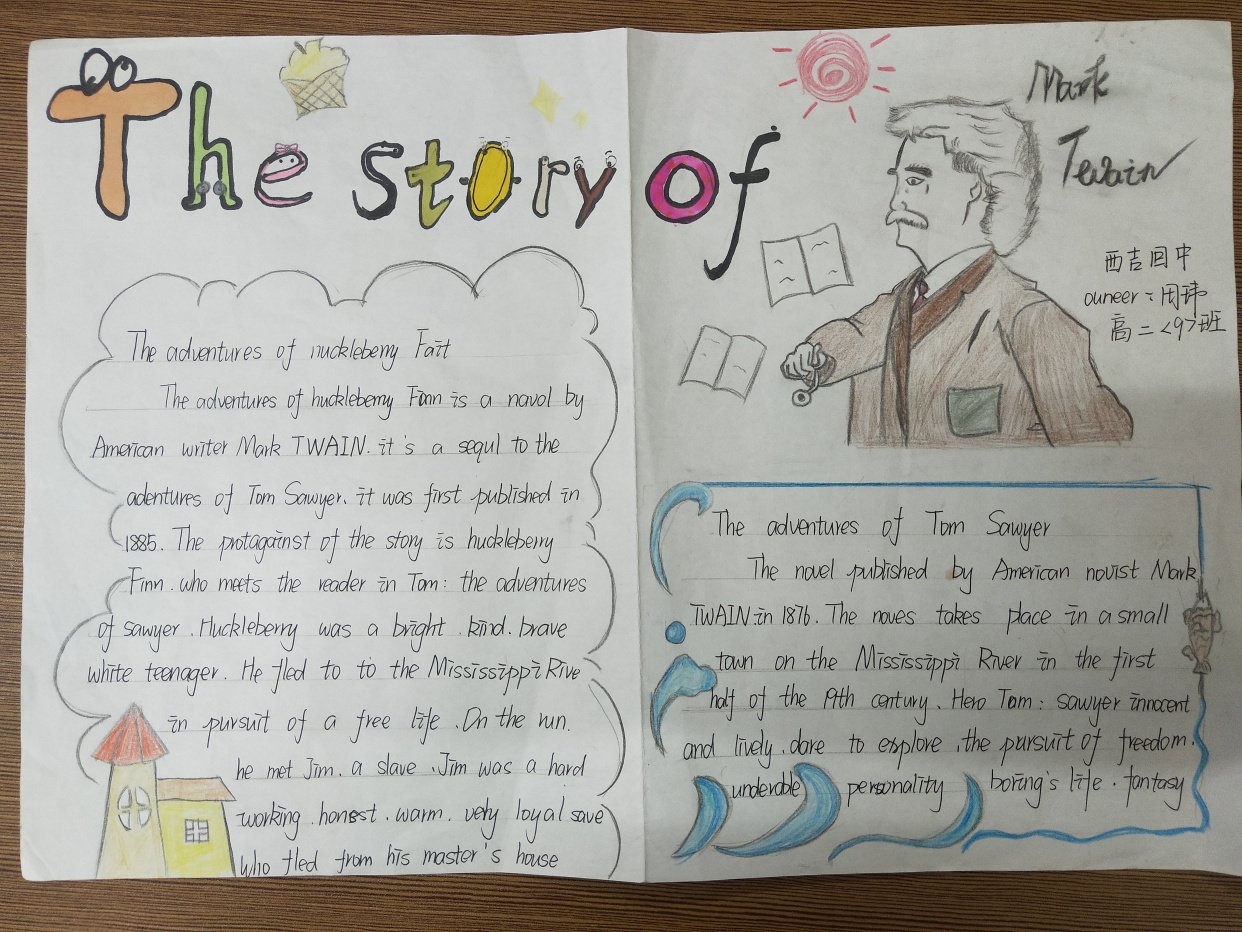 The story of
Mark
Twain
西吉回中
ouneer:周玮
高二<9>班
The adventures of huckleberry Fait
The adventures of huckleberry Finn is a navol by
American writer Mark TWAIN. it's a sequl to the
adentures of Tom Sawyer. it was first published in
1885. The protagainst of the story is huckleberry
Finn. who meets the reader in Tom: the adventures
of sawyer. Huckleberry was a bright. kind. brave
white teenager. He fled to to the Mississippi Rive
in pursuit of a free life. On the run.
he met Jim. a slave. Jim was a hard
working. honest. warm. very loyal save
who fled from his master's house
The adventures of Tom Sawyer
The novel published by American novist Mark
TWAIN in 1876. The noves takes place in a small
town on the Mississippi River in the first
half of the 19th century. Hero Tom: sawyer innocent
and lively. dare to explore. the pursuit of freedom.
underable personality boring's life. fantasy